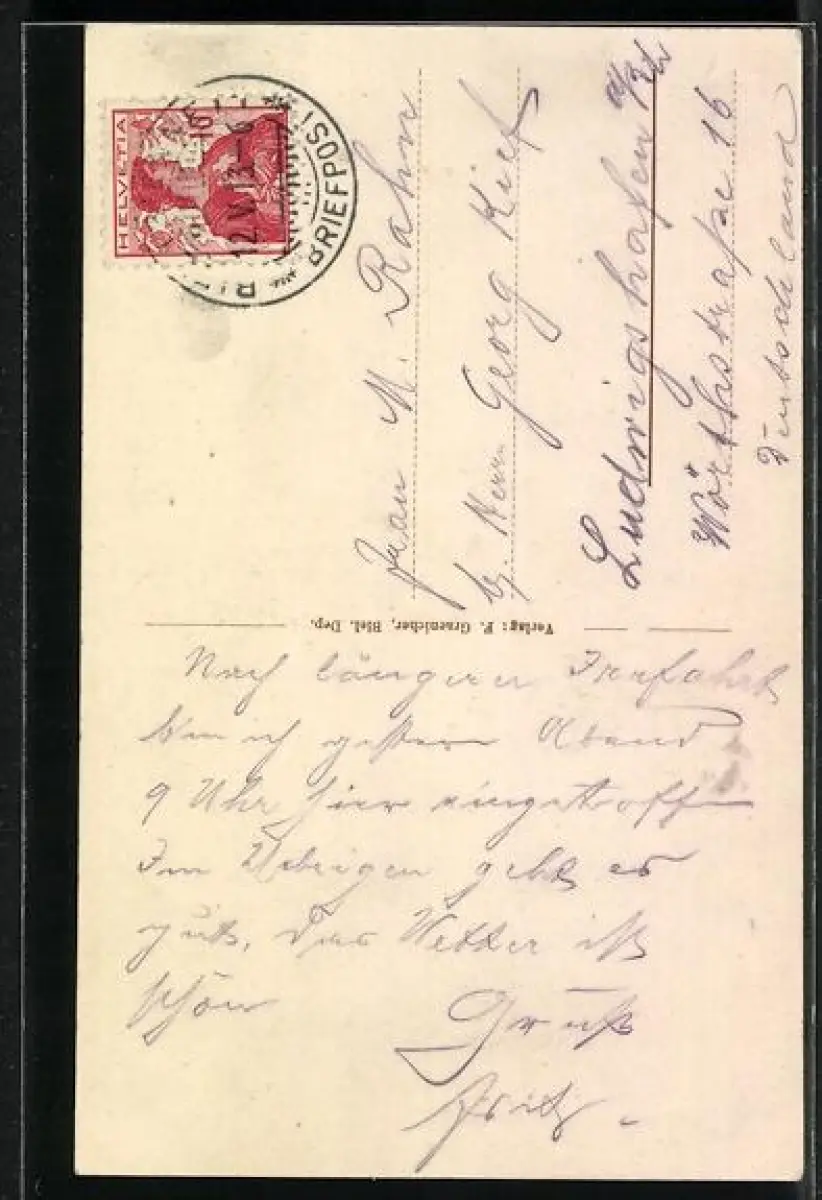 HELVETIA
12.V.13.-6
BRIEFPOST
Frau M. Rahm
bj. Herrn Georg Kief
Ludwigshafen a/Rh
Wörthstraße 16
Deutschland
Verlag: F. Graenicher, Biel. Dep.
Nach längerer Irrfahrt
bin ich gestern Abend
9 Uhr hier eingetroffen
Im Uebrigen geht es
gut, das Wetter ist
schön
Gruß
Fritz.